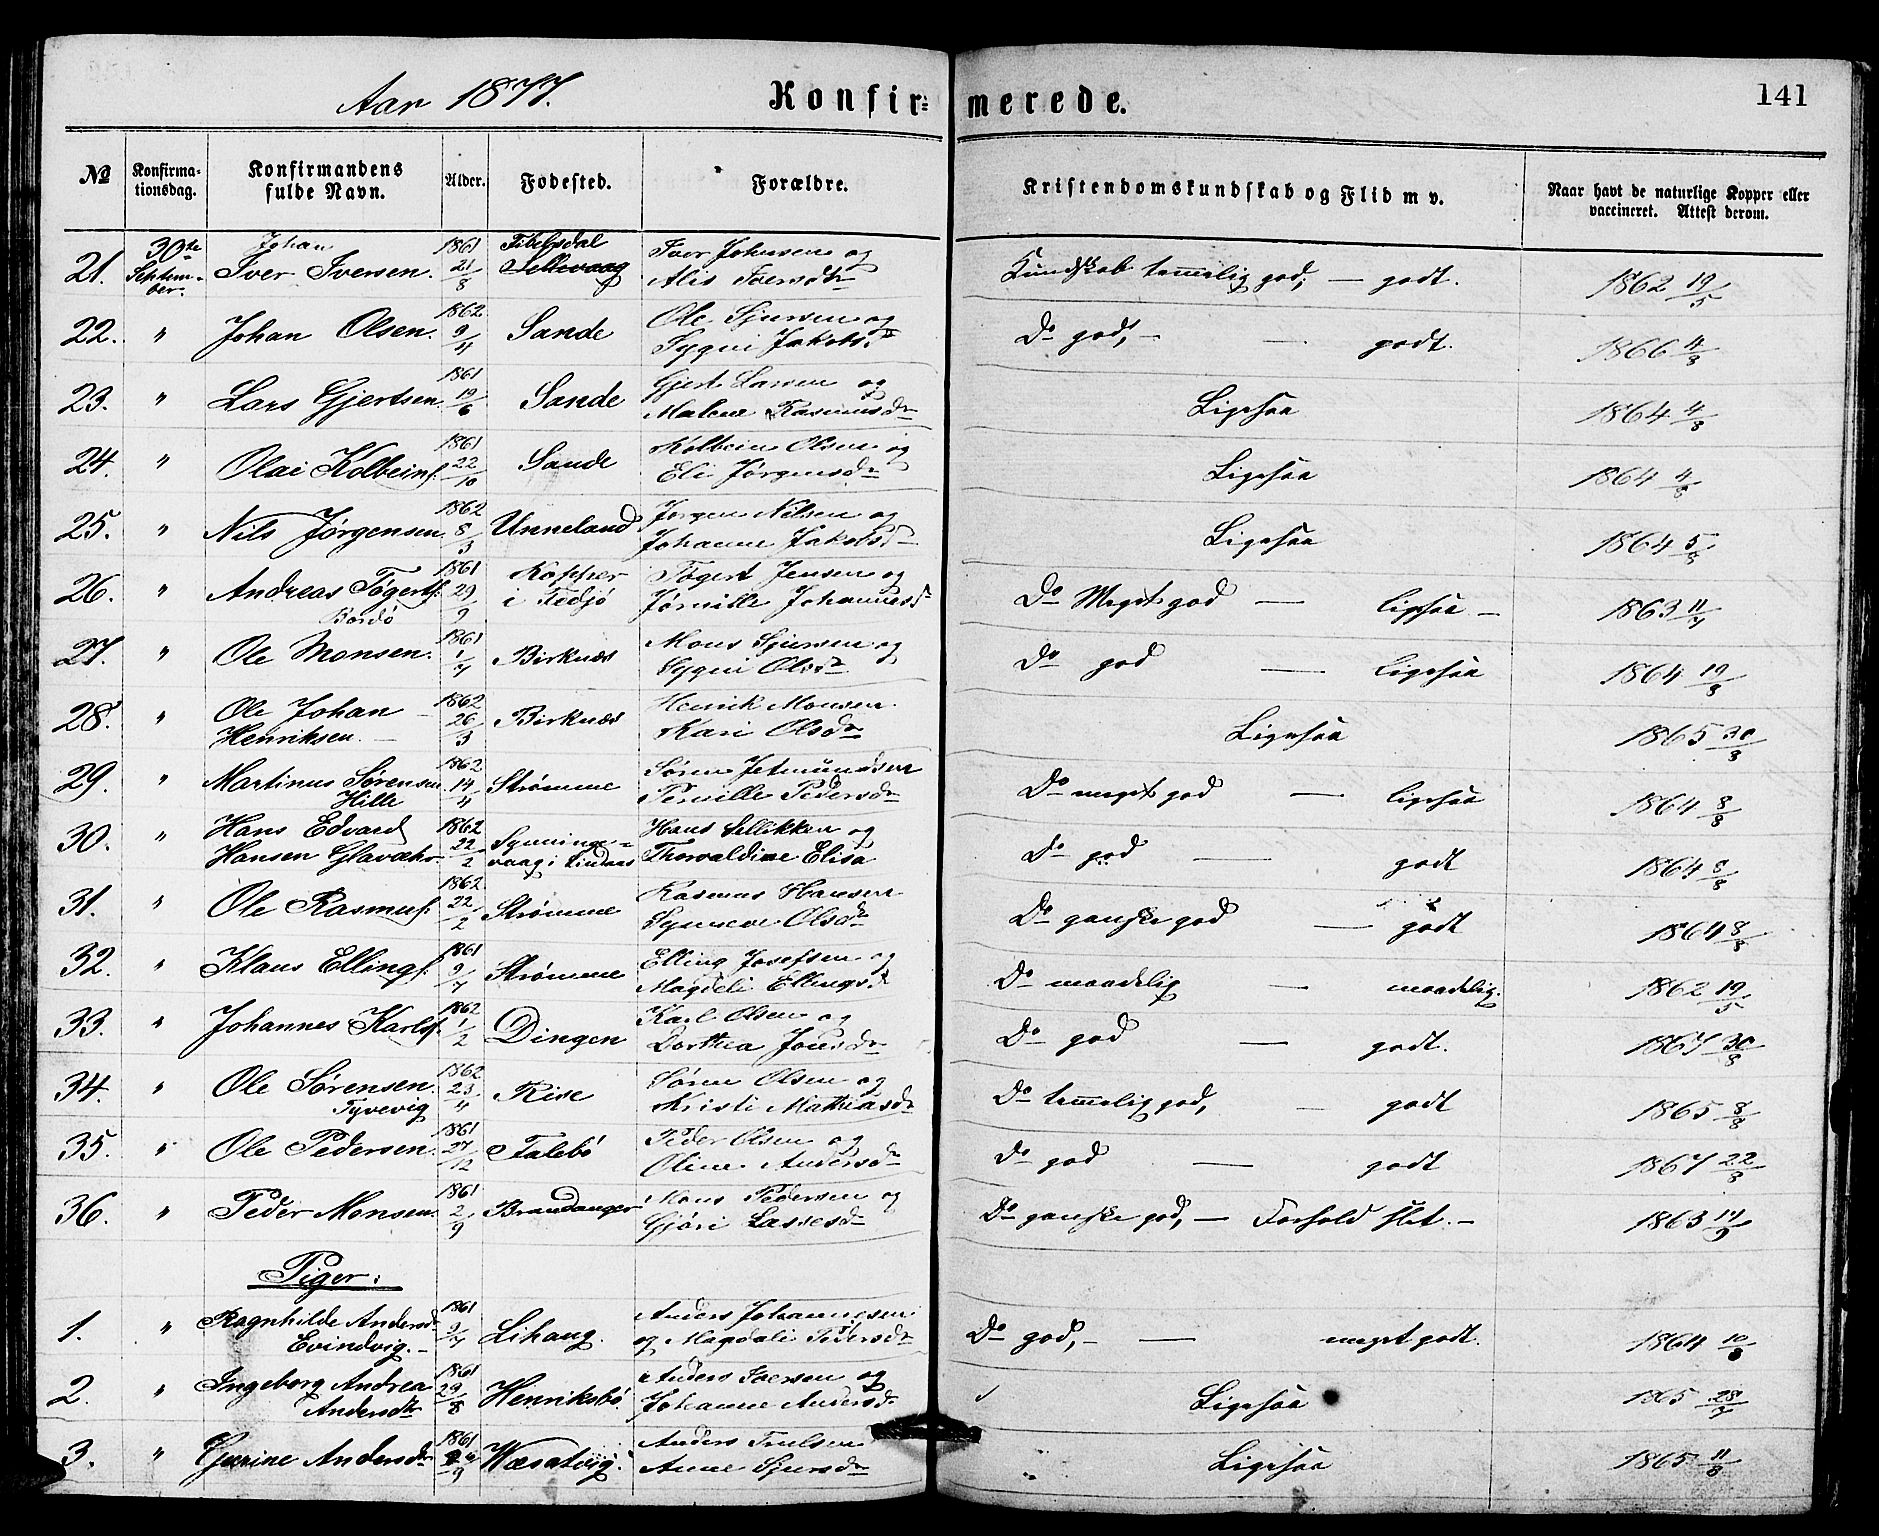 Aar 1877. Konfir- merede. 141
№ Konfirma-tionsdag. Konfirmandens fulde Navn. Alder. Fødested. Forældre. Kristendomskundskab og Flid m v. Naar havt de naturlige Kopper eller vaccineret. Attest derom.
21. 30te September. Johan Iver Iversen. 1861 21/8 Iver Johnsen og Alis Iversdtr Kundskab temmelig god, — godt. 1862 19/5
22. " Johan Olsen. 1862 9/4 Sande Ole Sjursen og Sygni Jakobsd. Do god, — — godt. 1866 4/8
23. " Lars Gjertsen. 1861 19/6 Sande Gjert Larsen og Malene Rasmusdr Ligesaa 1864 4/8
24. " Olai Kolbeins. 1861 22/10 Sande Kolbein Olsen og Eli Jørgensdr Ligesaa 1864 4/8
25. " Nils Jørgensen. 1862 8/3 Unneland Jørgen Nilsen og Johanne Jakobsdr Ligesaa 1864 5/8
26. " Andreas Tøgerts. Bordø 1861 29/9 Kopper i Fedjø Tøgert Jensen og Johannesdr Do Meget god — ligesaa — 1863 11/7
27. " Ole Monsen. 1861 1/7 Birknæs Mons Sjursen og Sygni Olsdr Do god — ligesaa 1864 19/8
28. " Ole Johan — Henriksen. — 1862 26/3 Birknæs Henrik Monsen. Kari Olsdr Ligesaa 1865 30/8
29. " Martinus Sørensen Hille 1862 14/4 Strømme Søren Jetmundsen Pernille Pedersdr Do meget god — ligesaa 1864 8/8
30. " Hans Edvard Hansen Glavæhr. 1862 22/2 i Lindaas Hans Sellikken og Thorvaldine Elisa Do god — godt 1864 8/8
31. " Ole Rasmus. 1862 22/2 Strømme Rasmus Hansen Synneve Olsdr Do ganske god — godt 1864 8/8
32. " Klaus Ellings. 1861 9/7 Strømme Elling Josefsen og Magdeli Ellingsd. Do maadelig — maadelig. 1862 19/5
33. " Johannes Karls. 1862 1/2 Dingen Karl Olsen og Dorthea Jonsdr Do god — godt. 1867 30/8
34. " Ole Sørensen. Tyvevig 1862 23/4 Rise Søren Olsen og Kristi Mathiasdr Do temmelig god, — godt 1865 8/8
35. " Ole Pedersen. 1861 27/12 Talebø Peder Olsen og Oline Andersdr Do god — godt 1867 22/8
36. " Peder Monsen. 1861 2/9 Brandanger Mons Pedersen og Gjøri Lassesdr Do ganske god, — Forhold slet. — 1863 19/9
Piger:
1. " Ragnhilde Andersdr Evindvig. — 1861 9/7 Lihaug. Anders Johannesen og Magdali Pedersdr Do god, — — meget godt. 1864 10/8
2. " Ingeborg Andrea Andersdtr 1861 29/8 Henriksbø Anders Iversen og Johanne Andersdr Ligesaa 1865 28/7
3. " Gjerine Andersdr 1861 Anders Trulsen Anne Sjursdr " Ligesaa 1865 11/8